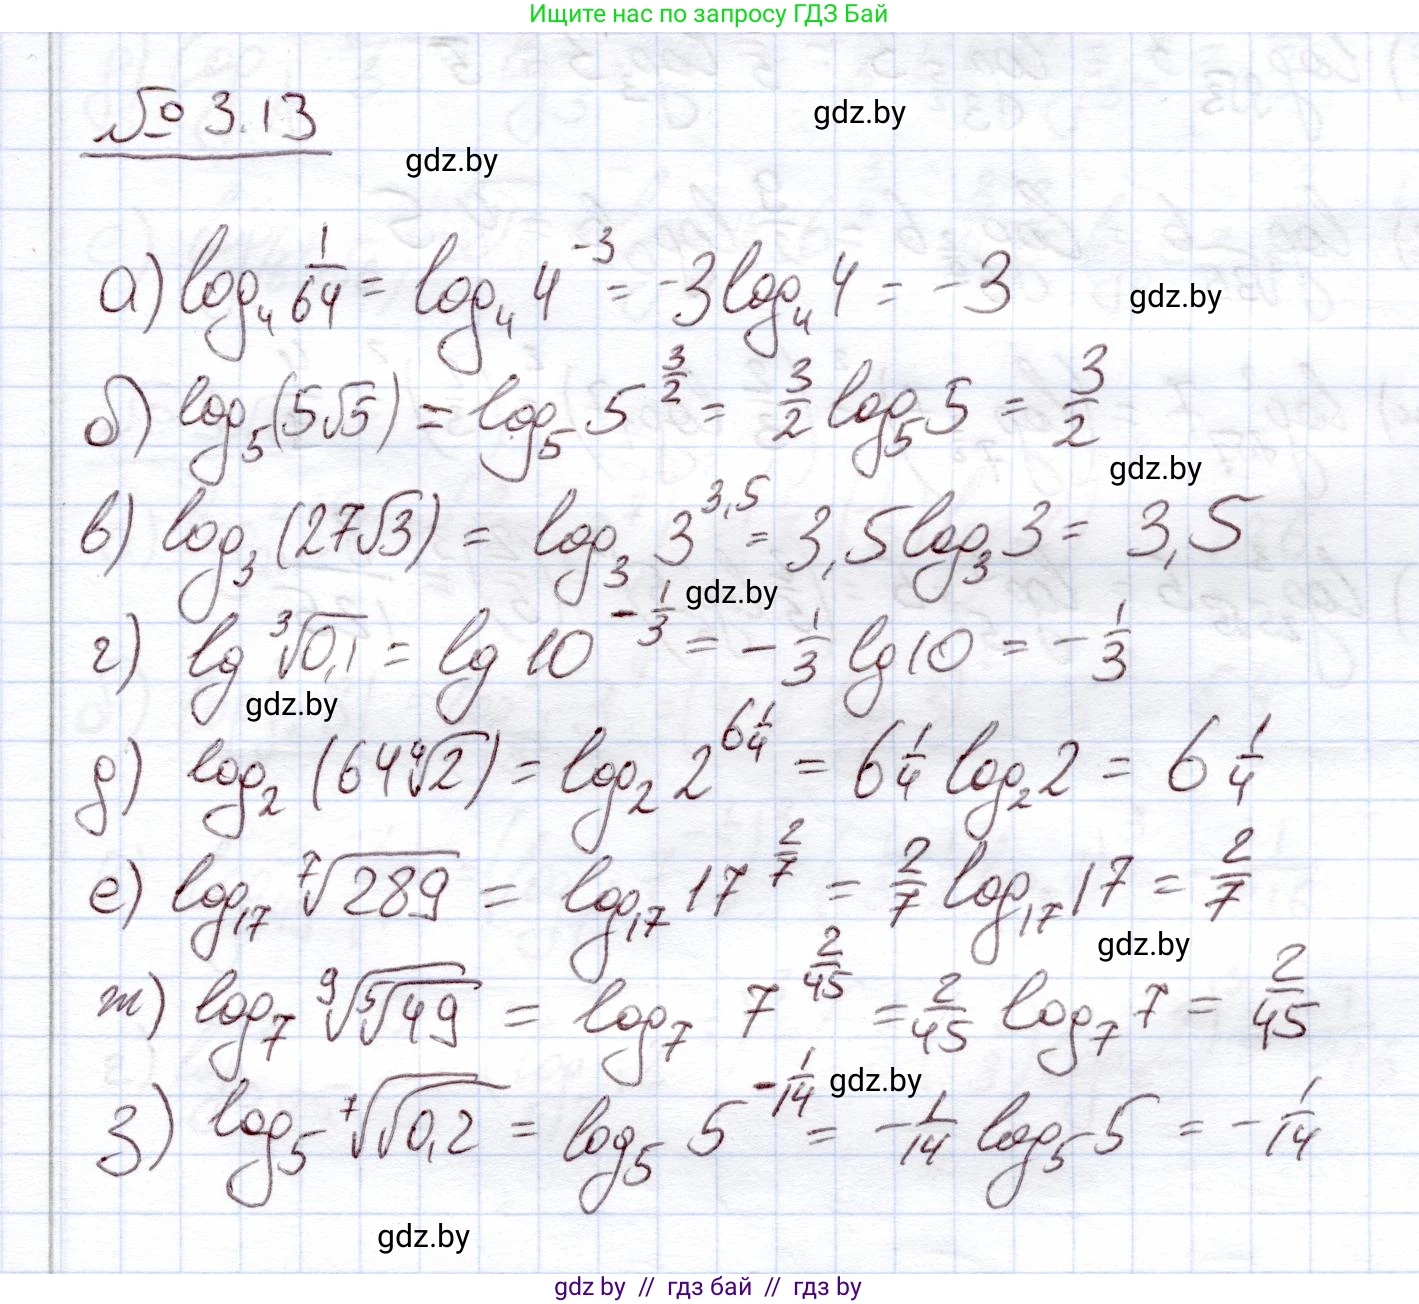 Ищите нас по запросу ГДЗ Бай
№ 3.13
gdz.by
gdz.by
а) log₄ 1/64 = log₄ 4⁻³ = -3 log₄ 4 = -3
gdz.by
б) log₅(5√5) = log₅ 5^(3/2) = 3/2 log₅ 5 = 3/2
gdz.by
в) log₃(27√3) = log₃ 3^(3,5) = 3,5 log₃ 3 = 3,5
gdz.by
г) lg ∛0,1 = lg 10^(-1/3) = -1/3 lg 10 = -1/3
gdz.by
д) log₂(64 ∜2) = log₂ 2^(6 1/4) = 6 1/4 log₂ 2 = 6 1/4
е) log₁₇ ⁷√289 = log₁₇ 17^(2/7) = 2/7 log₁₇ 17 = 2/7
gdz.by
ж) log₇ ⁹√(⁵√49) = log₇ 7^(2/45) = 2/45 log₇ 7 = 2/45
gdz.by
з) log₅ ⁷√(√0,2) = log₅ 5^(-1/14) = -1/14 log₅ 5 = -1/14
gdz.by
gdz.by // гдз бай // гдз by